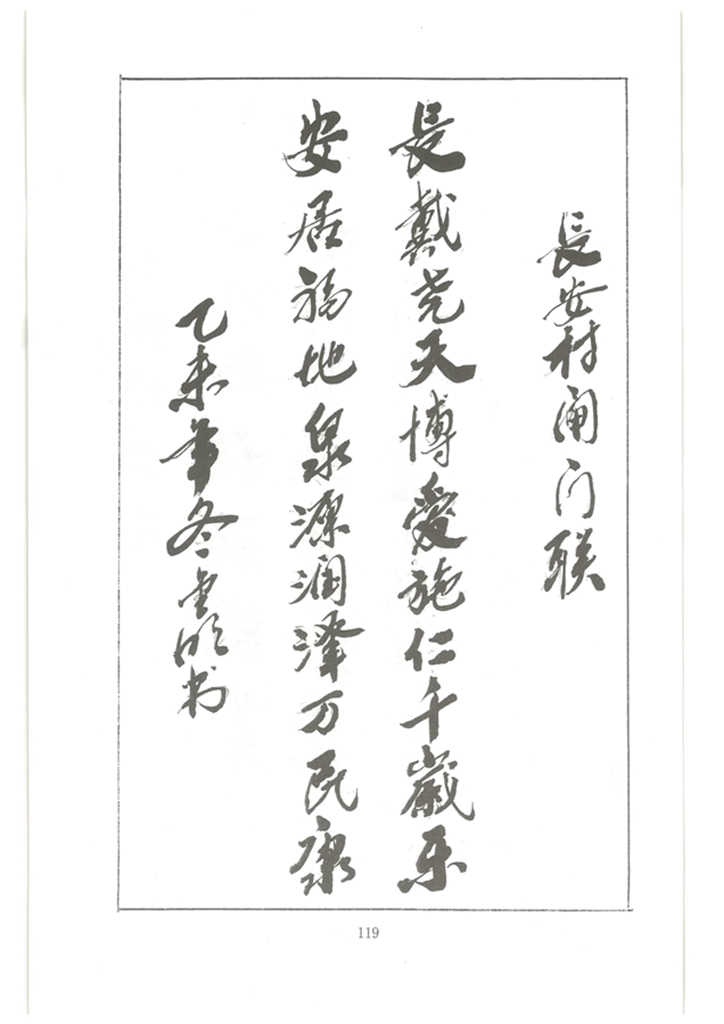 長安村闸门联
長戴尧天博愛施仁千歲乐
安居福地泉源润澤万民康
乙未年冬明书
119